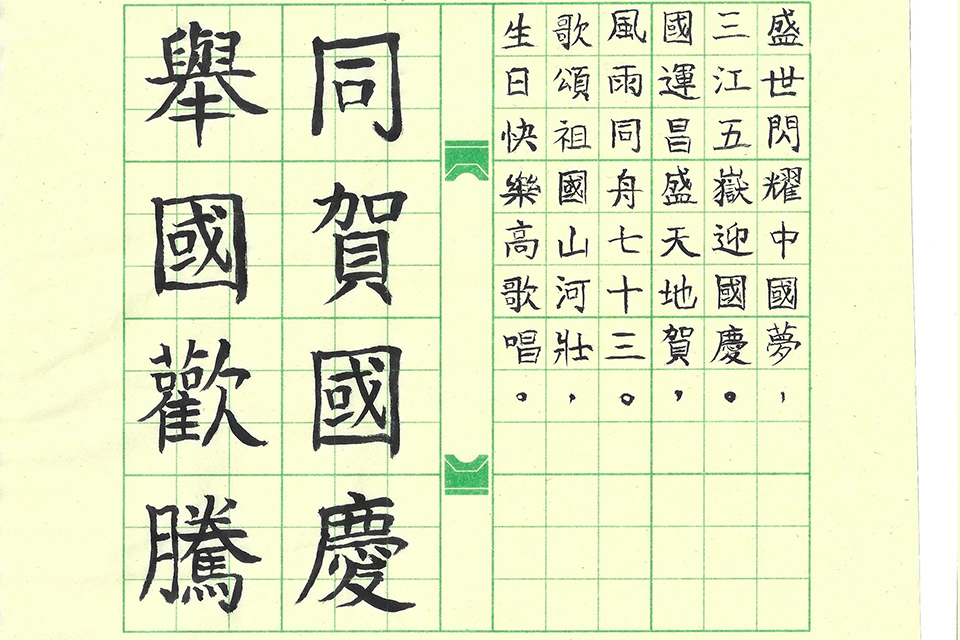 盛世閃耀中國夢，
三江五嶽迎國慶。
國運昌盛天地賀，
風雨同舟七十三。
歌頌祖國山河壯，
生日快樂高歌唱。
同賀國慶
舉國歡騰